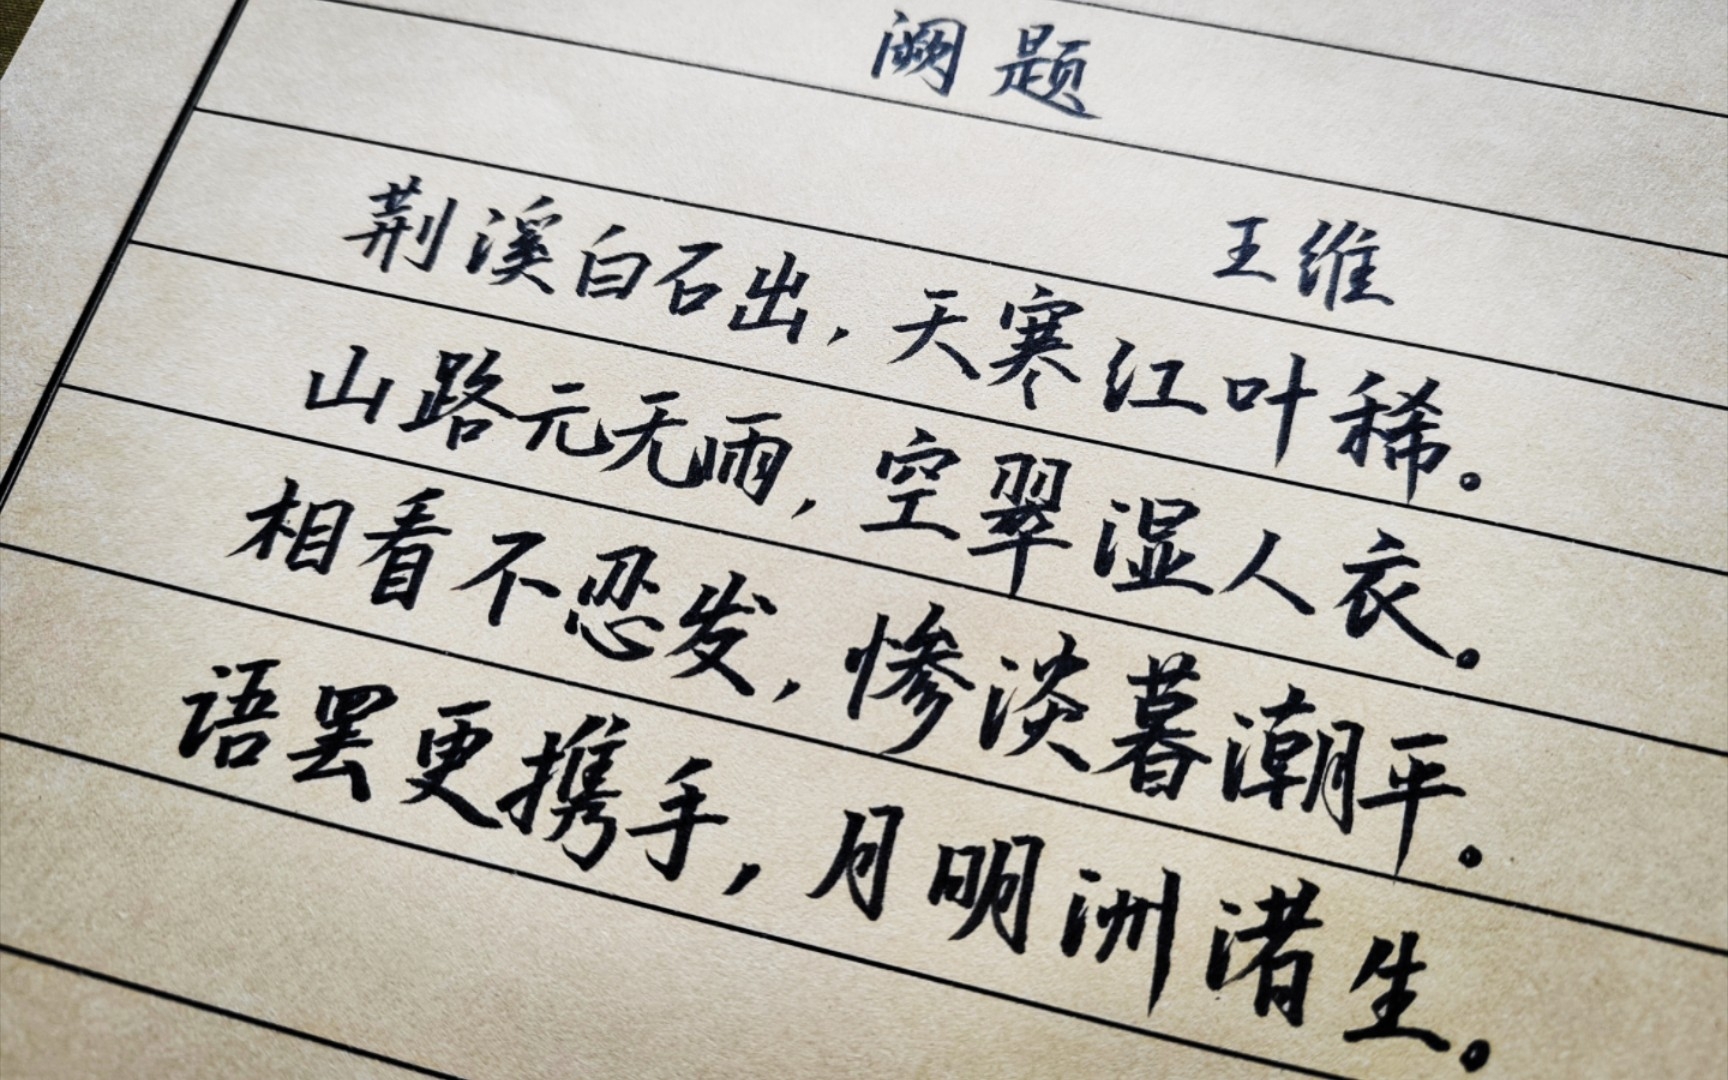 阙题
王维
荆溪白石出，天寒江叶稀。
山路元无雨，空翠湿人衣。
相看不忍发，惨淡暮潮平。
语罢更携手，月明洲渚生。